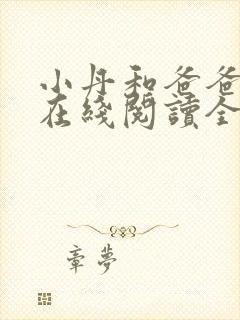 小丹和爸爸
在綫閱讀全
童夢